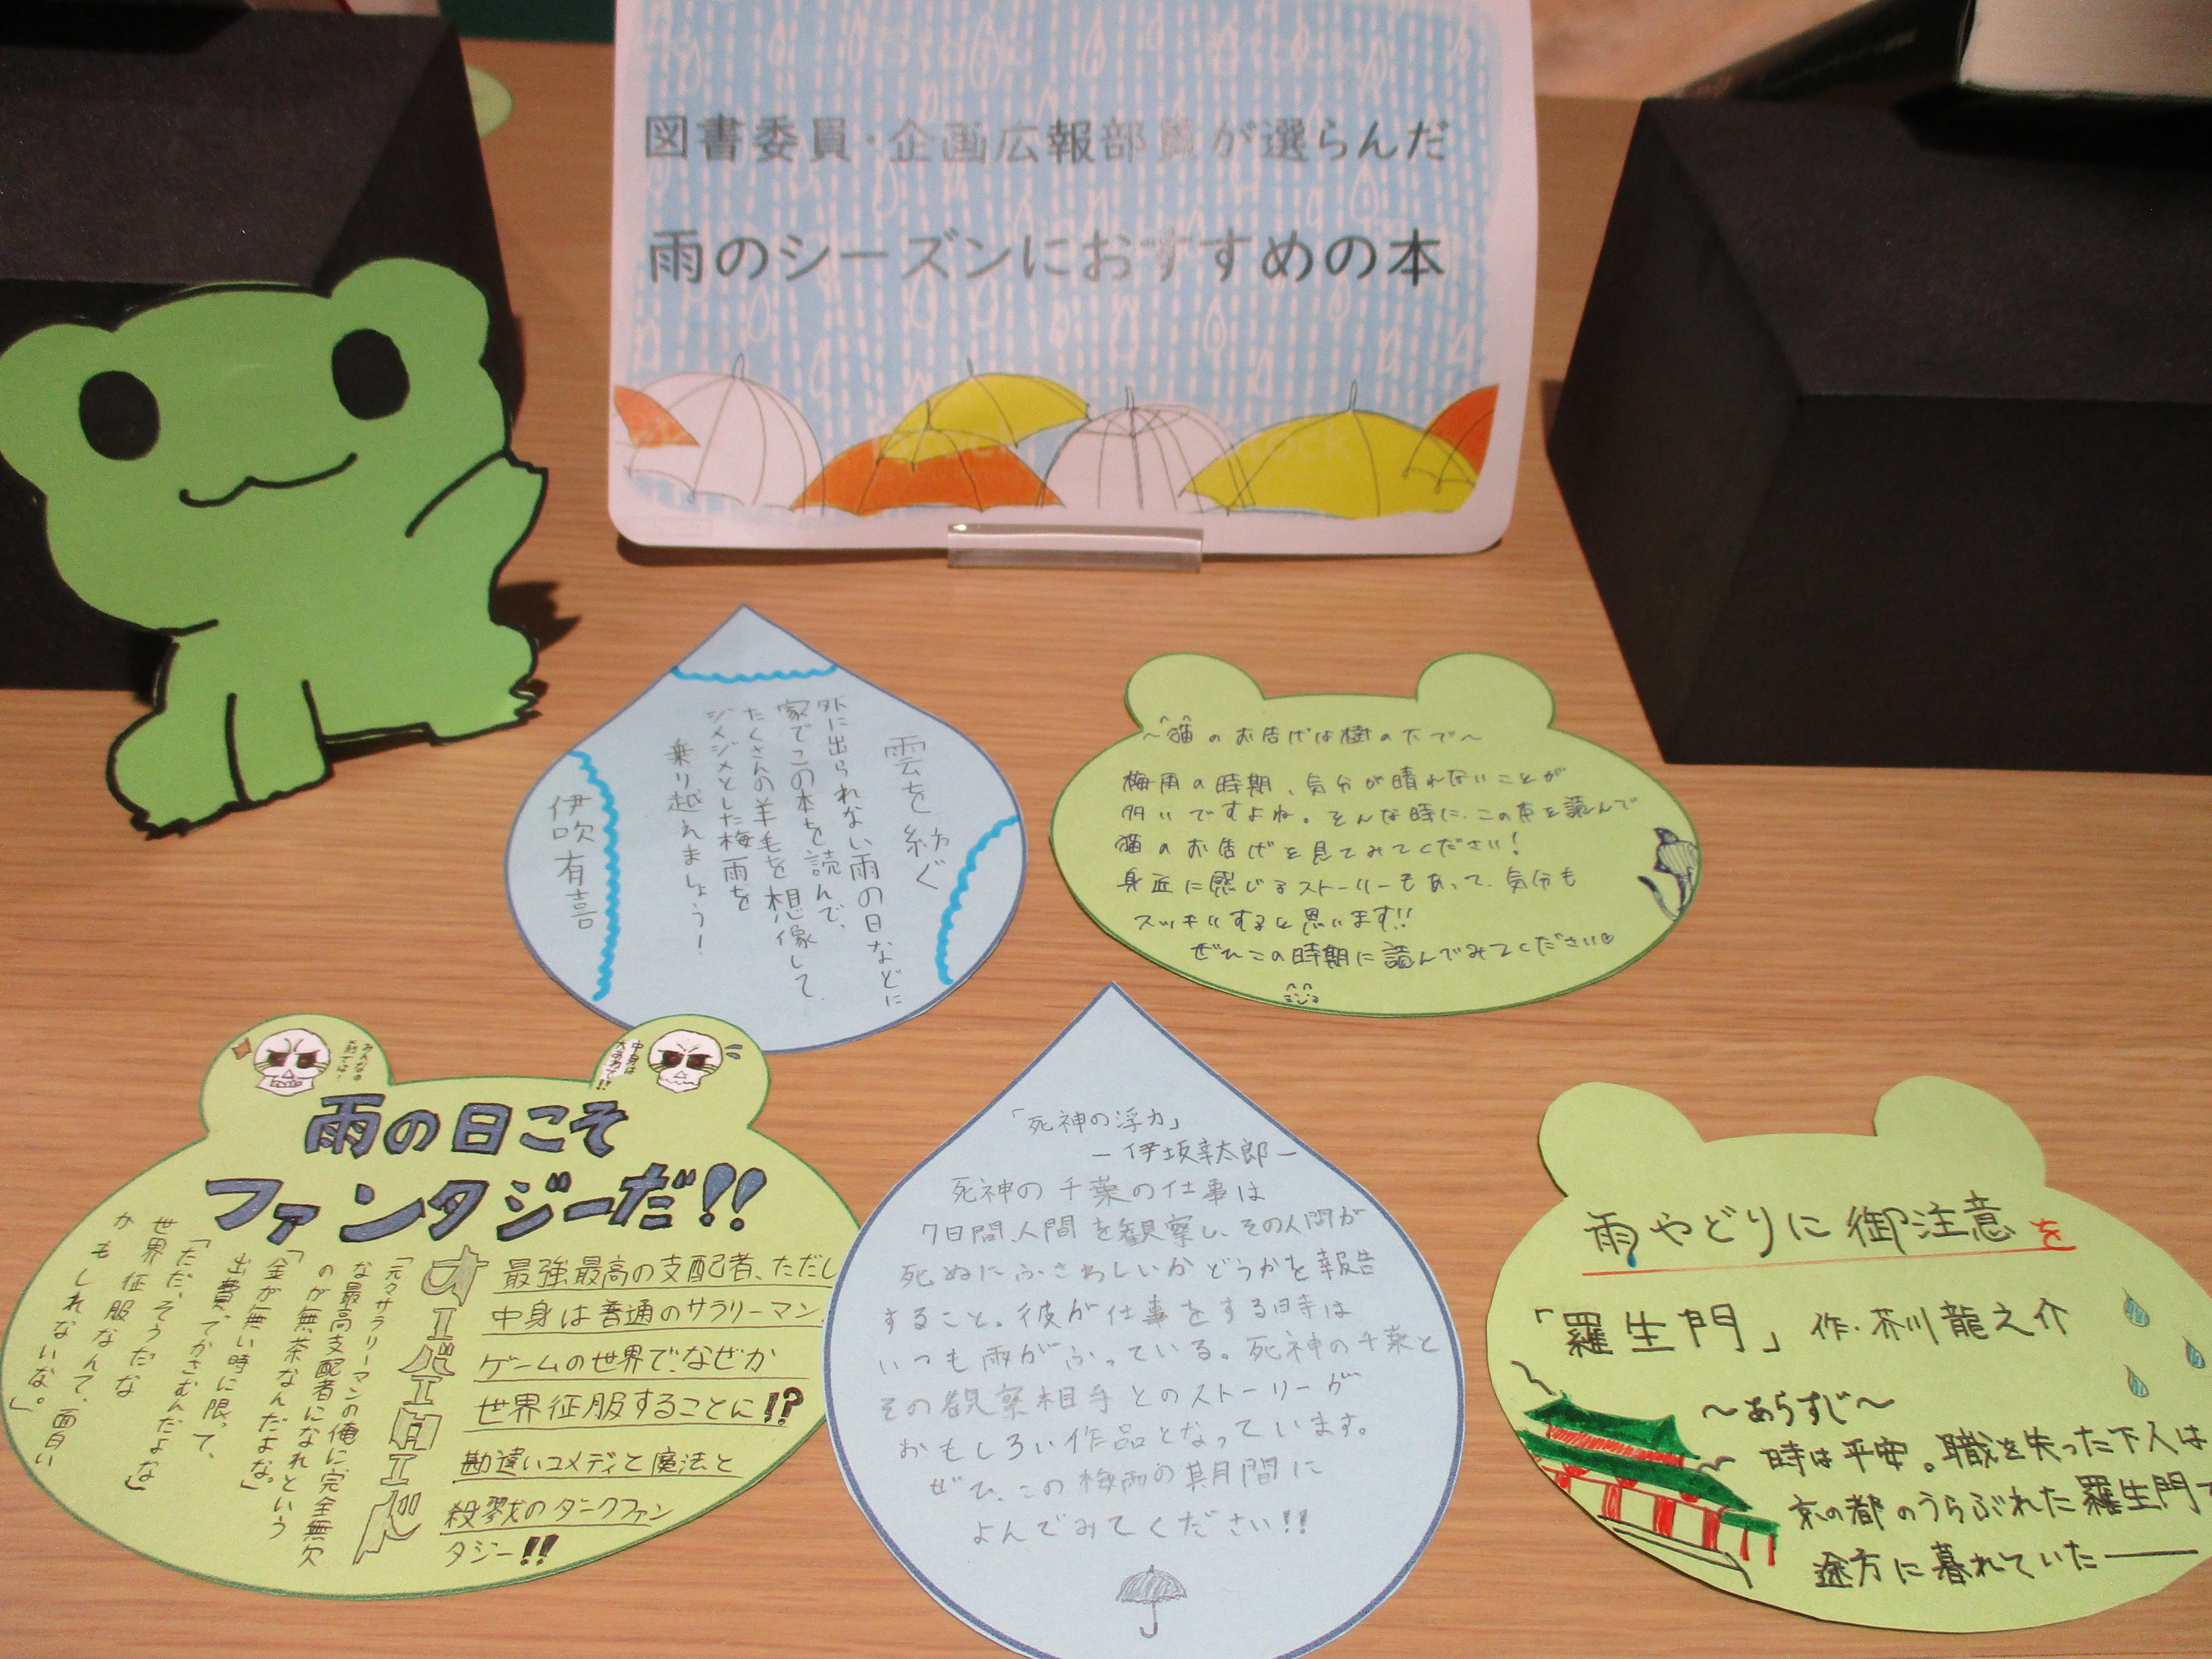 図書委員・企画広報部員が選らんだ
雨のシーズンにおすすめの本
雲を紡ぐ
外に出られない雨の日などに
家でこの本を読んで、
たくさんの羊毛を想像して、
ジメジメとした梅雨を
乗り越えましょう!
伊吹有喜
~猫のお告げは樹の下で~
梅雨の時期、気分が晴れないことが
多いですよね。そんな時に、この本を読んで
猫のお告げを見てみてください!
身近に感じるストーリーもあって、気分も
スッキリすると思います!!
ぜひこの時期に読んでみてください♡
中身は
雨の日こそ
ファンタジーだ!!
最強最高の支配者、ただし
中身は普通のサラリーマン。
ゲームの世界で、なぜか
世界征服することに!?
勘違いコメディと魔法と
殺戮のダークファン
タジー!!
オーバーロード
「元々サラリーマンの俺に完全無欠
な最高支配者になれという
のが無茶なんだよな。」
「金が無い時に限って、
出費ってかさむんだよな」
「ただ、そうだな
世界征服なんて、面白い
かもしれないな。」
「死神の浮力」
－伊坂幸太郎－
死神の千葉の仕事は
7日間、人間を観察し、その人間が
死ぬにふさわしいかどうかを報告
すること。彼が仕事をする時は
いつも雨がふっている。死神の千葉と
その観察相手とのストーリーが
おもしろい作品となっています。
ぜひ、この梅雨の期間に
よんでみてください!!
雨やどりに御注意を
「羅生門」作・芥川龍之介
~あらすじ~
時は平安。職を失った下人は
京の都のうらぶれた羅生門で
途方に暮れていた――